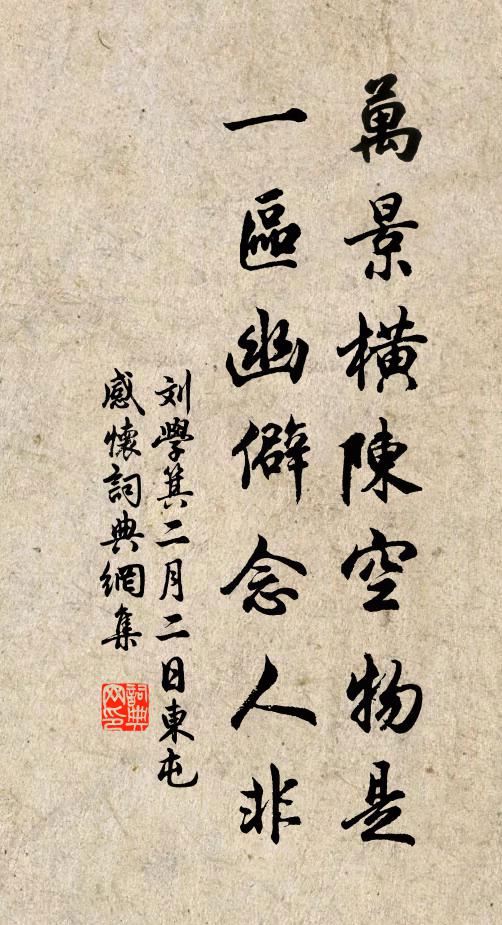 萬景橫陳空物是
一區幽僻念人非
刘學箕二月二日東屯
感懷詞典網集
詞典
网印